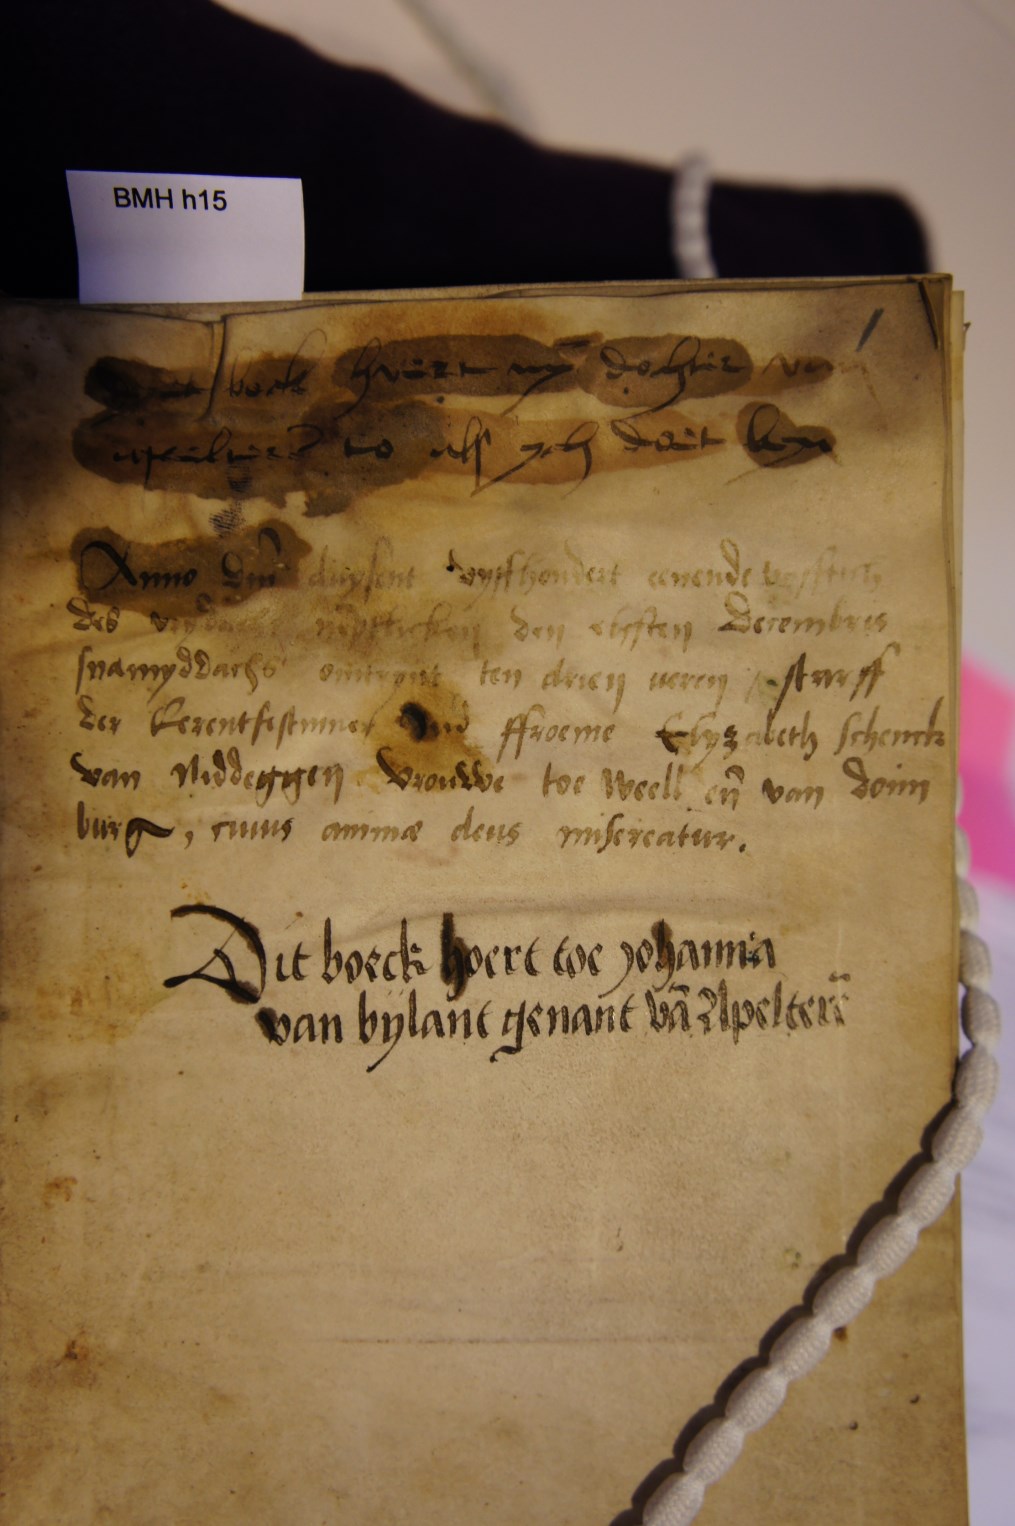 BMH h15
boeck hoert myn dochter van
to als ych doet byn
Anno dnī duysent vyffhondert eenende vyfftich
des den elfften Decembris
snamyddachs omtrynt ten drien ueren starff
der Eerentfestinner vnd ffroeme Elyzabeth schenck
van Niddeggen Vrouwe toe Weell eñ van doinn
burg, cuius animæ deus misereatur.
Dit boeck hoert toe yohanna
van bÿlant genant vā Apelterē